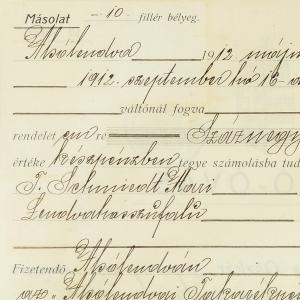 Másolat -10. fillér bélyeg.
Alsólendva 1912 május
1912. szeptember hó 16-
váltónál fogva
rendelet em re Száznegy
értéke készpénzben tegye számolásba tud
T. Schmiedt Mari
Lendvahosszufalu
Fizetendő Alsólendván
az „Alsólendvai Takarékpén